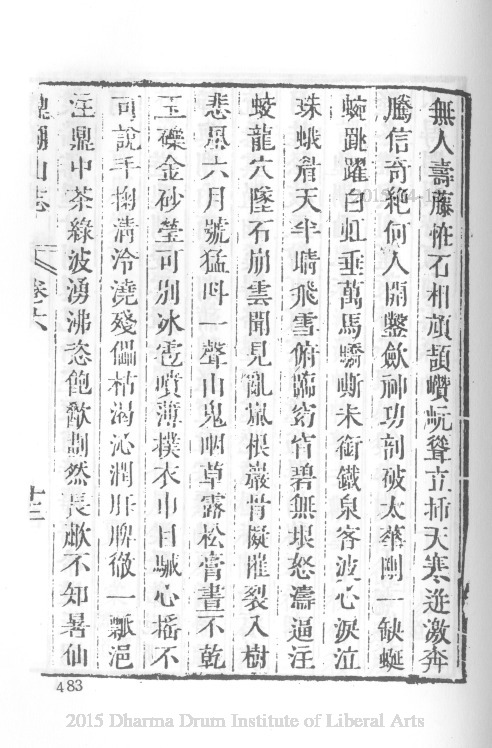 無人壽藤恠石相頑頡巑岏聳立揷天寒迸激奔
騰信奇絶何人開鑿歛神功剖破太華剛一缺蜒
蜿跳躍白虹垂萬馬驕嘶未銜鐵泉客波心淚泣
珠蛾眉天半晴飛雪俯臨窈窅碧無垠怒濤逼注
蛟龍穴墜石崩雲聞見亂嵐根巖骨擬摧裂入樹
悲風六月號猛呌一聲山鬼咽草露松膏晝不乾
玉礫金砂瑩可別冰雹噴薄撲衣巾目駴心搖不
可說手掬清泠澆殘 枯渴沁潤肝脾徹一瓢浥
注鼎中茶綠波湧沸恣飽歠劃然長歗不知暑仙
鼎湖山志 卷六 十三
483
2015 Dharma Drum Institute of Liberal Arts